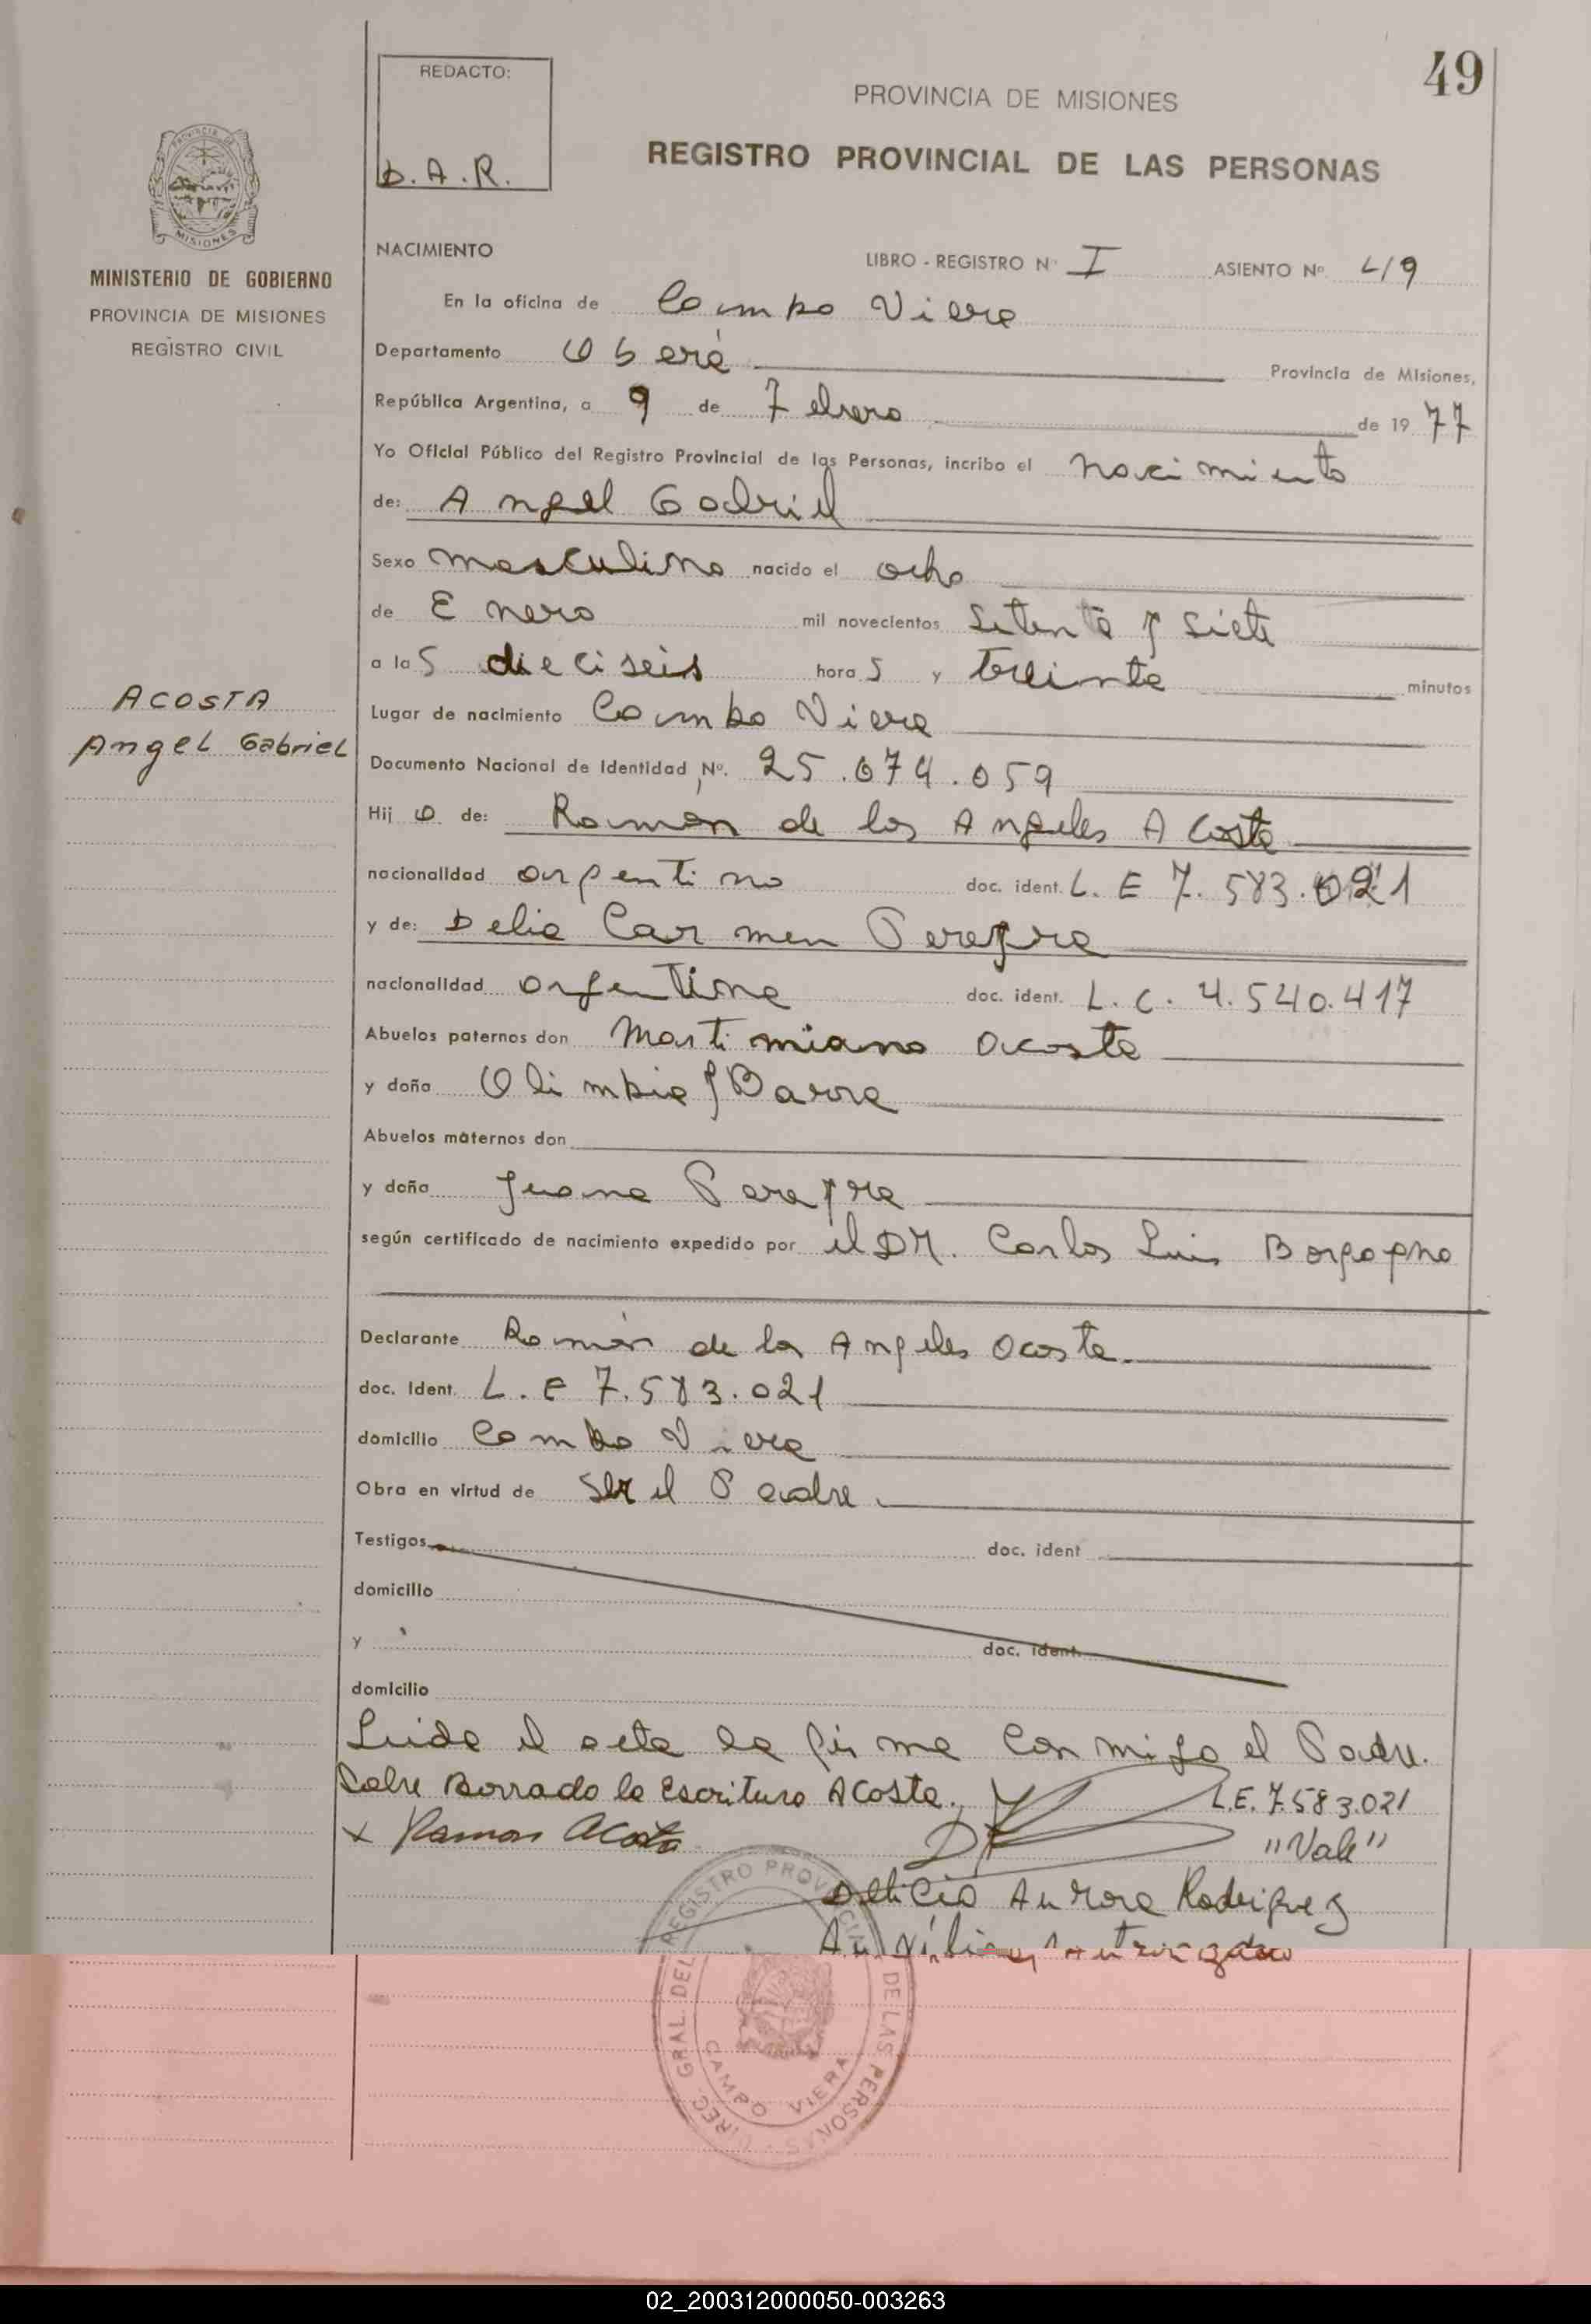 49
REDACTO:
D.A.R.
PROVINCIA DE MISIONES
REGISTRO PROVINCIAL DE LAS PERSONAS
MISIONES
MINISTERIO DE GOBIERNO
PROVINCIA DE MISIONES
REGISTRO CIVIL
NACIMIENTO LIBRO - REGISTRO Nº I ASIENTO Nº 49
En la oficina de Campo Viera
Departamento Oberá Provincia de Misiones,
República Argentina, a 9 de Febrero de 1977
Yo Oficial Público del Registro Provincial de las Personas, incribo el nacimiento
de: Angel Gabriel
Sexo masculino nacido el ocho
de Enero mil novecientos setenta y siete
a las dieciseis horas y treinta minutos
ACOSTA
Angel Gabriel
Lugar de nacimiento Campo Viera
Documento Nacional de Identidad Nº. 25.674.059
Hijo de: Ramón de los Angeles Acosta
nacionalidad argentino doc. ident. L. E 7.583.021
y de: Delia Carmen Pereyra
nacionalidad argentina doc. ident. L. C. 4.540.417
Abuelos paternos don Martimiano Acosta
y doña Olimpia Ybarra
Abuelos maternos don
y doña Juana Pereyra
según certificado de nacimiento expedido por el DR. Carlos Luis Borgogno
Declarante Ramón de los Angeles Acosta.
doc. Ident. L. E 7.583.021
domicilio Campo Viera
Obra en virtud de ser el Padre.
Testigos doc. ident
domicilio
y doc. ident.
domicilio
Leida el acta la firma conmigo el Padre.
Sobre Borrado la Escritura Acosta. L.E. 7.583.021
x Ramon Acosta "Vale"
Delicia Aurora Rodriguez
DIREC. GRAL. DEL REGISTRO PROVINCIAL DE LAS PERSONAS
CAMPO VIERA
02_200312000050-003263